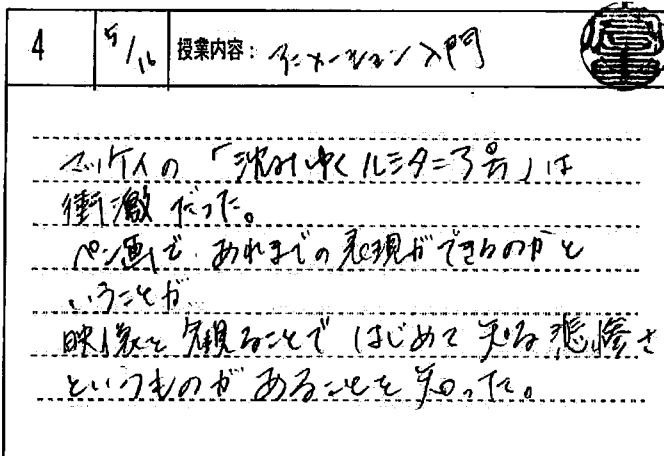 4 5/16 授業内容: アニメーション入門
マッケイの「沈みゆくルシタニア号」は
衝激だった。
ペン画で、あれまでの表現ができるのかと
いうことが
映像を観ることではじめて知る悲惨さ
というものがあることを知った。